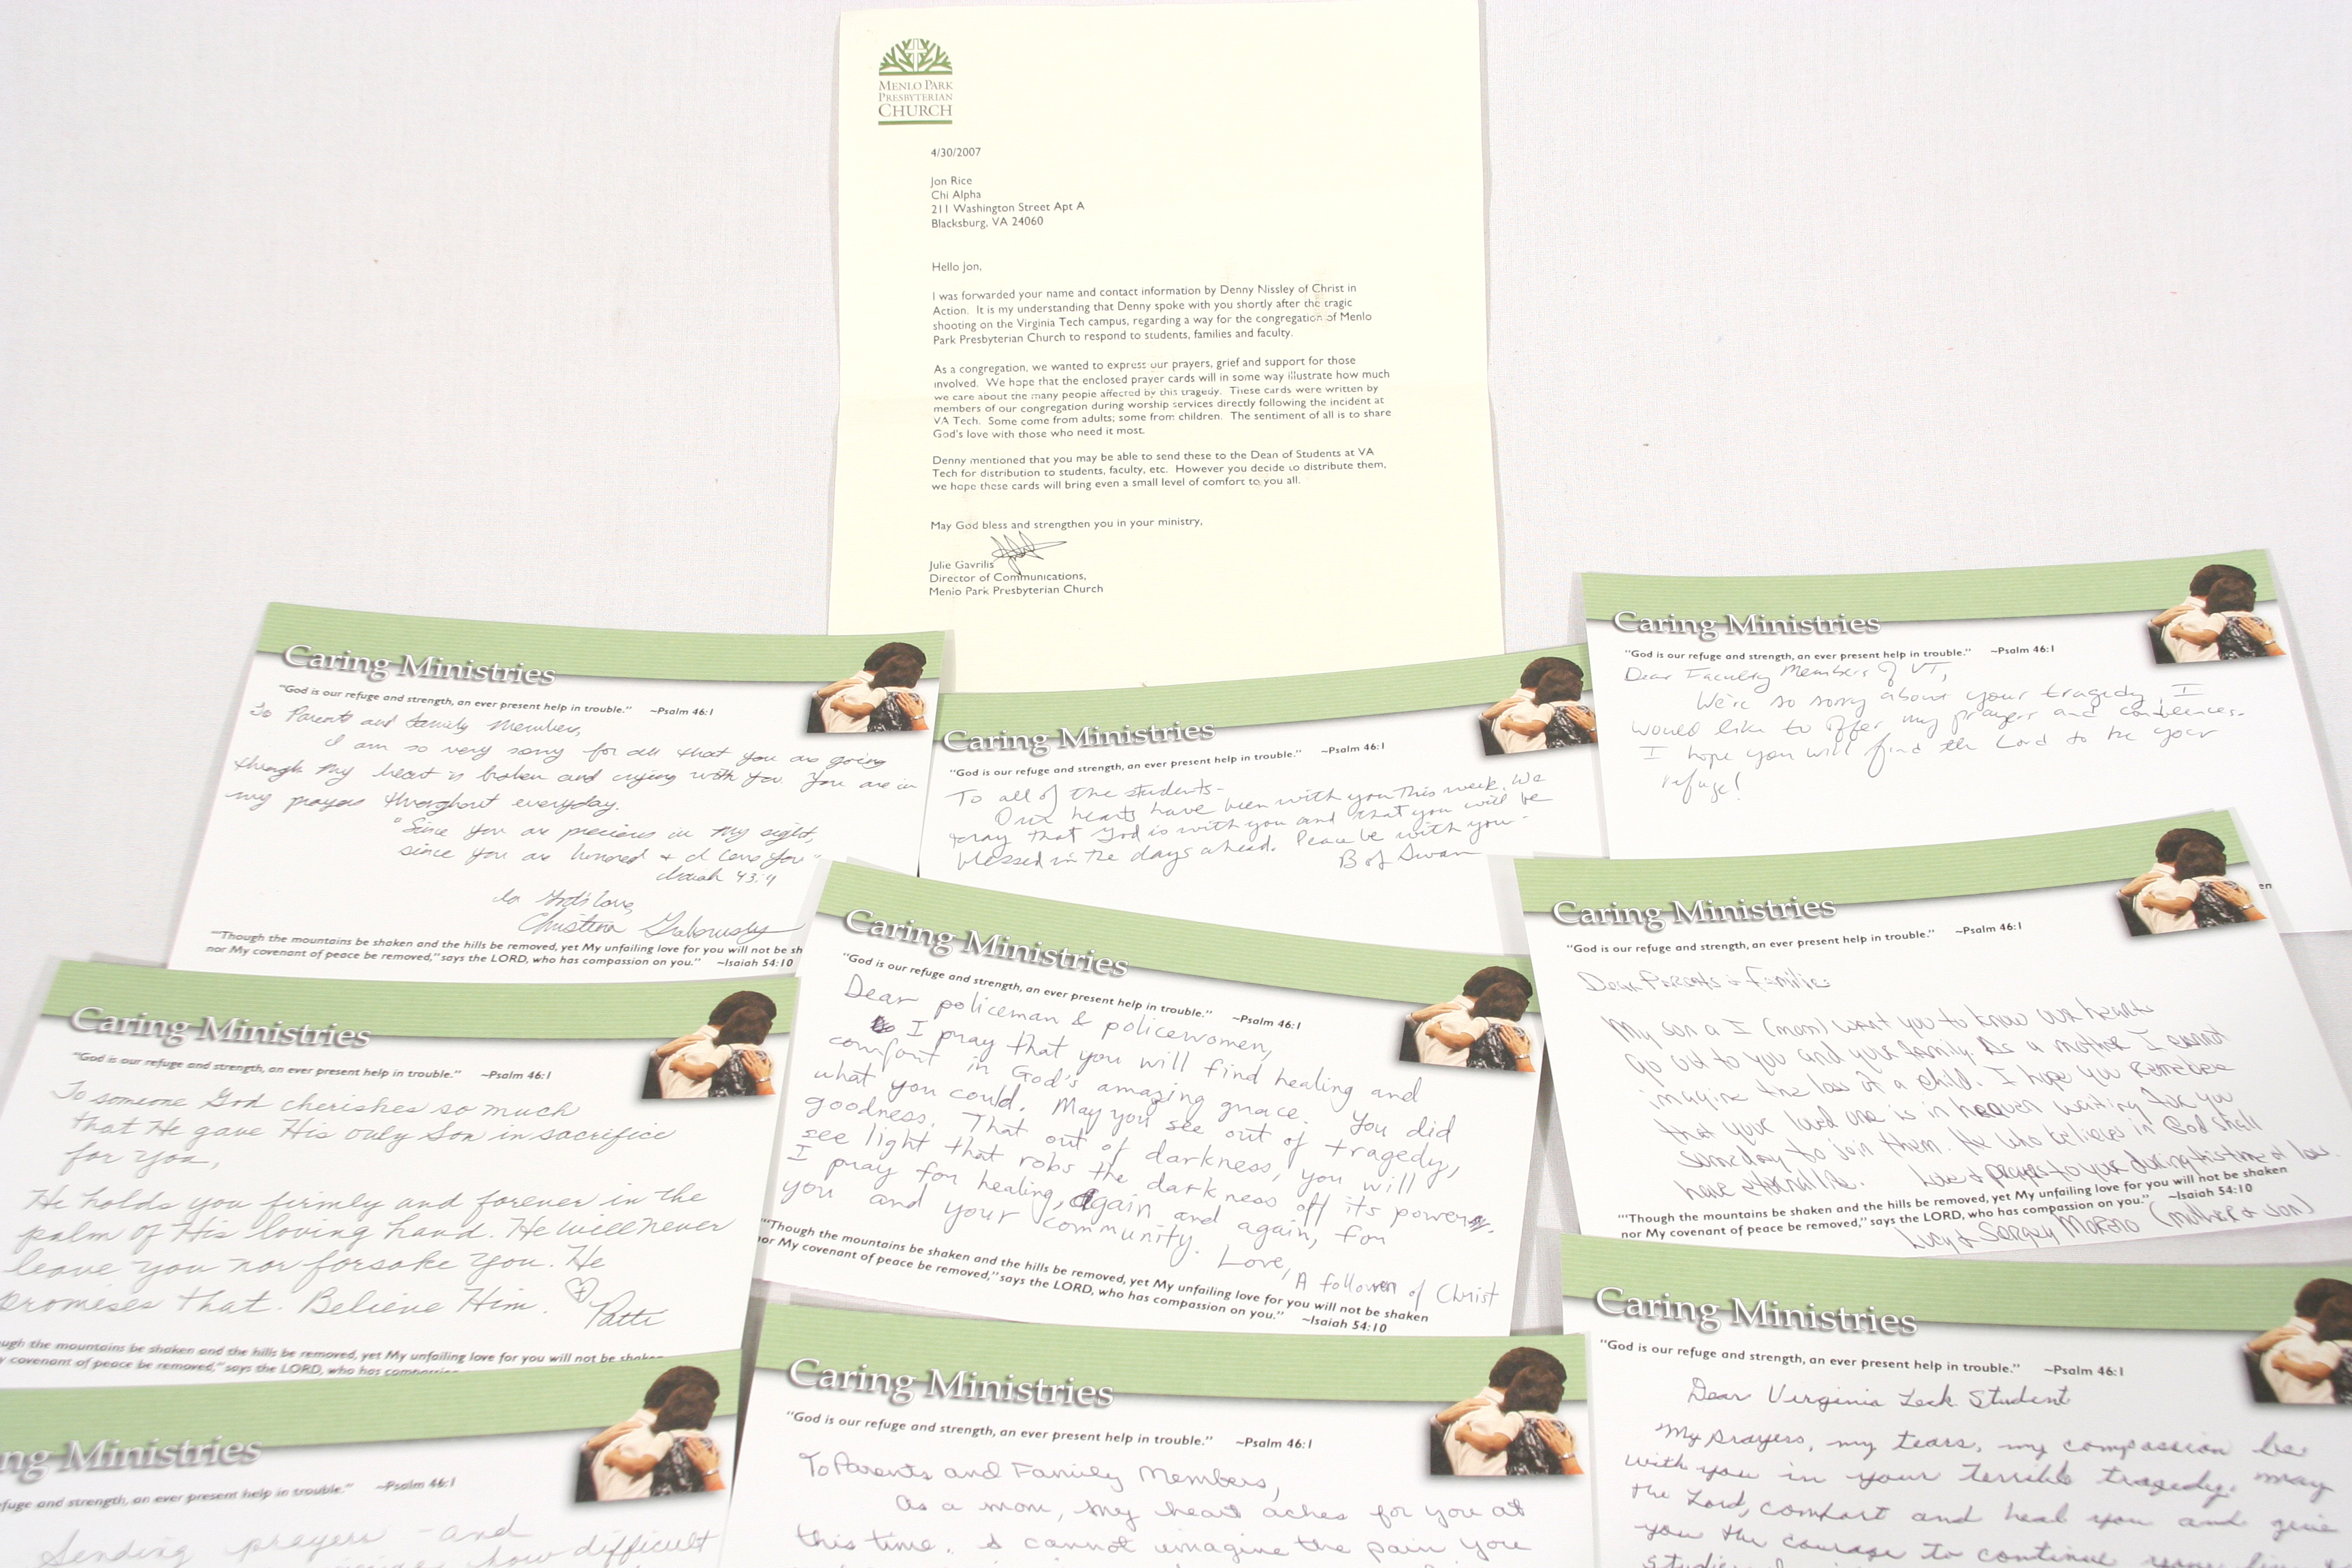 MENLO PARK
PRESBYTERIAN
CHURCH
4/30/2007
Jon Rice
Chi Alpha
211 Washington Street Apt A
Blacksburg, VA 24060
Hello Jon,
I was forwarded your name and contact information by Denny Nissley of Christ in
Action. It is my understanding that Denny spoke with you shortly after the tragic
shooting on the Virginia Tech campus, regarding a way for the congregation of Menlo
Park Presbyterian Church to respond to students, families and faculty.
As a congregation, we wanted to express our prayers, grief and support for those
involved. We hope that the enclosed prayer cards will in some way illustrate how much
we care about the many people affected by this tragedy. These cards were written by
members of our congregation during worship services directly following the incident at
VA Tech. Some come from adults; some from children. The sentiment of all is to share
God's love with those who need it most.
Denny mentioned that you may be able to send these to the Dean of Students at VA
Tech for distribution to students, faculty, etc. However you decide to distribute them,
we hope these cards will bring even a small level of comfort to you all.
May God bless and strengthen you in your ministry,
Julie Gavrilis
Director of Communications,
Menlo Park Presbyterian Church
Caring Ministries
"God is our refuge and strength, an ever present help in trouble." ~Psalm 46:1
To Parents and family Members,
I am so very sorry for all that you are going
through my heart is broken and crying with you. You are in
my prayers throughout everyday.
"Since you are precious in my sight,
since you are honored + I love you"
Isaiah 43:4
In God's love,
Christina
"Though the mountains be shaken and the hills be removed, yet My unfailing love for you will not be sh
nor My covenant of peace be removed," says the LORD, who has compassion on you." ~Isaiah 54:10
Caring Ministries
"God is our refuge and strength, an ever present help in trouble." ~Psalm 46:1
To all of the students-
Our hearts have been with you this week. We
pray that God is with you and that you will be
blessed in the days ahead. Peace be with you-
B of Swan
Caring Ministries
"God is our refuge and strength, an ever present help in trouble." ~Psalm 46:1
Dear Faculty Members of VT,
We're so sorry about your tragedy, I
would like to offer my prayers and
I hope you will find the Lord to be your
refuge!
en
Caring Ministries
"God is our refuge and strength, an ever present help in trouble." ~Psalm 46:1
To someone God cherishes so much
that He gave His only Son in sacrifice
for you,
He holds you firmly and forever in the
palm of His loving hand. He will never
leave you nor forsake you. He
promises that. Believe Him.
Patti
ugh the mountains be shaken and the hills be removed, yet My unfailing love for you will not be shaken
y covenant of peace be removed," says the LORD, who has compassion
Caring Ministries
"God is our refuge and strength, an ever present help in trouble." ~Psalm 46:1
Dear policeman & policewomen,
I pray that you will find healing and
comfort in God's amazing grace. You did
what you could. May you see out of tragedy,
goodness. That out of darkness, you will
see light that robs the darkness off its power.
I pray for healing, again and again, for
you and your community. Love,
A follower of Christ
"Though the mountains be shaken and the hills be removed, yet My unfailing love for you will not be shaken
nor My covenant of peace be removed," says the LORD, who has compassion on you." ~Isaiah 54:10
Caring Ministries
"God is our refuge and strength, an ever present help in trouble." ~Psalm 46:1
Dear Parents & Families
My son & I (mom) want you to know our hearts
go out to you and your family. As a mother I cannot
imagine the loss of a child. I hope you remember
that your loved one is in heaven waiting for you
someday to join them. He who believes in God shall
have eternal life. Love & prayers to you during this time of loss.
"Though the mountains be shaken and the hills be removed, yet My unfailing love for you will not be shaken
nor My covenant of peace be removed," says the LORD, who has compassion on you." ~Isaiah 54:10
Lucy & Sergey Moreno (mother & son)
ng Ministries
efuge and strength, an ever present help in trouble." ~Psalm 46:1
Sending prayers and
how difficult
Caring Ministries
"God is our refuge and strength, an ever present help in trouble." ~Psalm 46:1
To Parents and Family Members,
As a mom, my heart aches for you at
this time. I cannot imagine the pain you
Caring Ministries
"God is our refuge and strength, an ever present help in trouble." ~Psalm 46:1
Dear Virginia Teck Student
My prayers, my tears, my compassion be
with you in your terrible tragedy. May
the Lord, comfort and heal you and give
you the courage to continue your